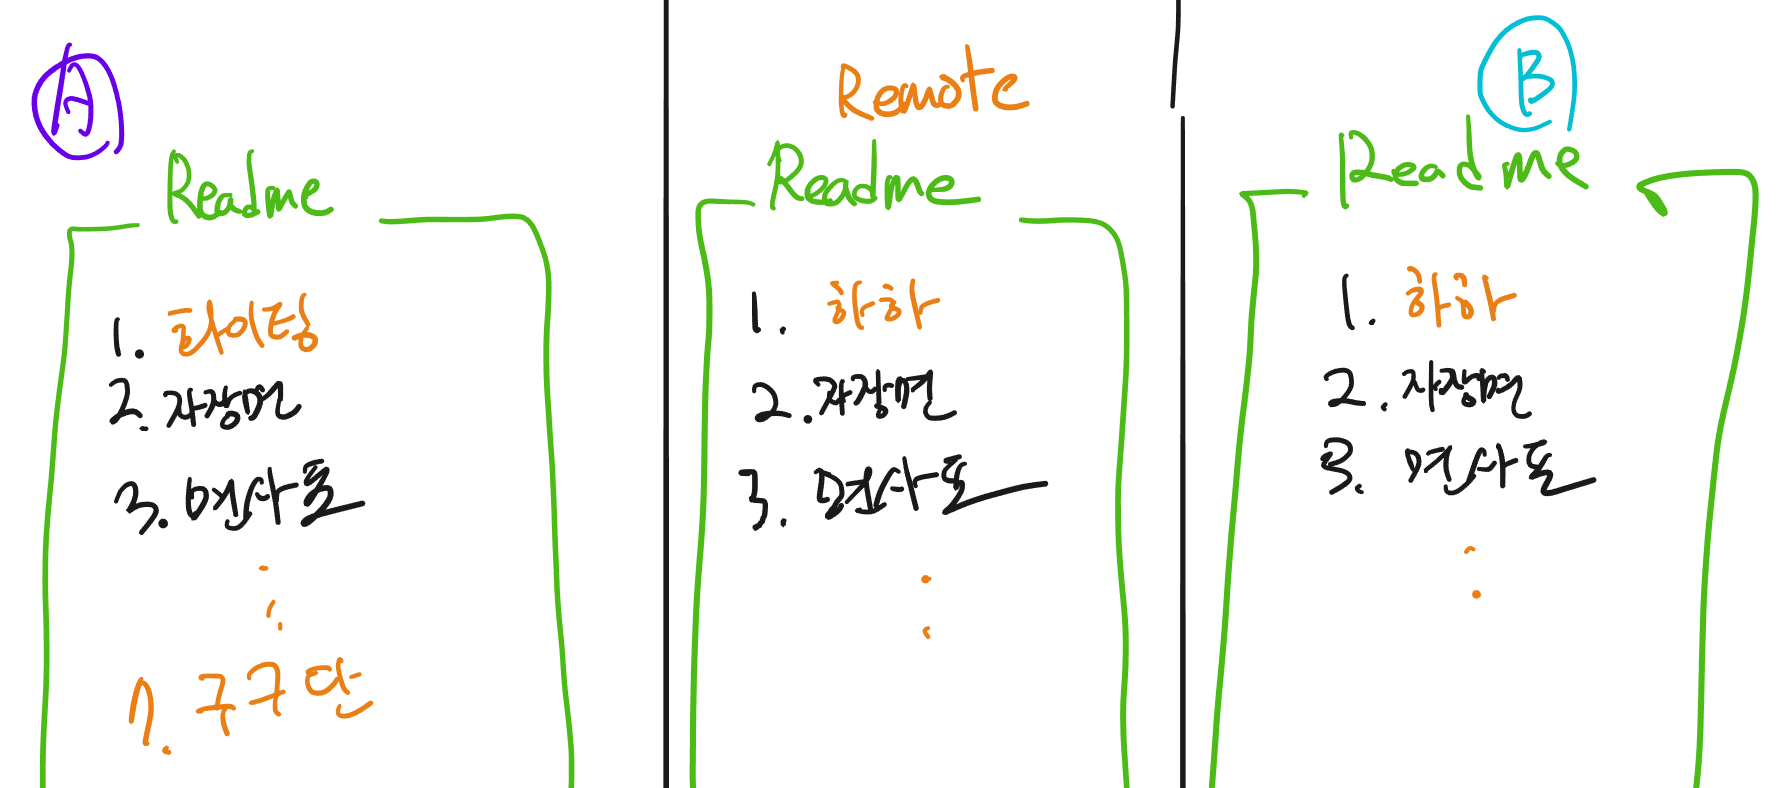 A
Readme
1. 화이팅
2. 자장면
3. 면사포
7. 구구단
Remote
Readme
1. 하하
2. 자장면
3. 면사포
B
Readme
1. 하하
2. 자장면
3. 면사포